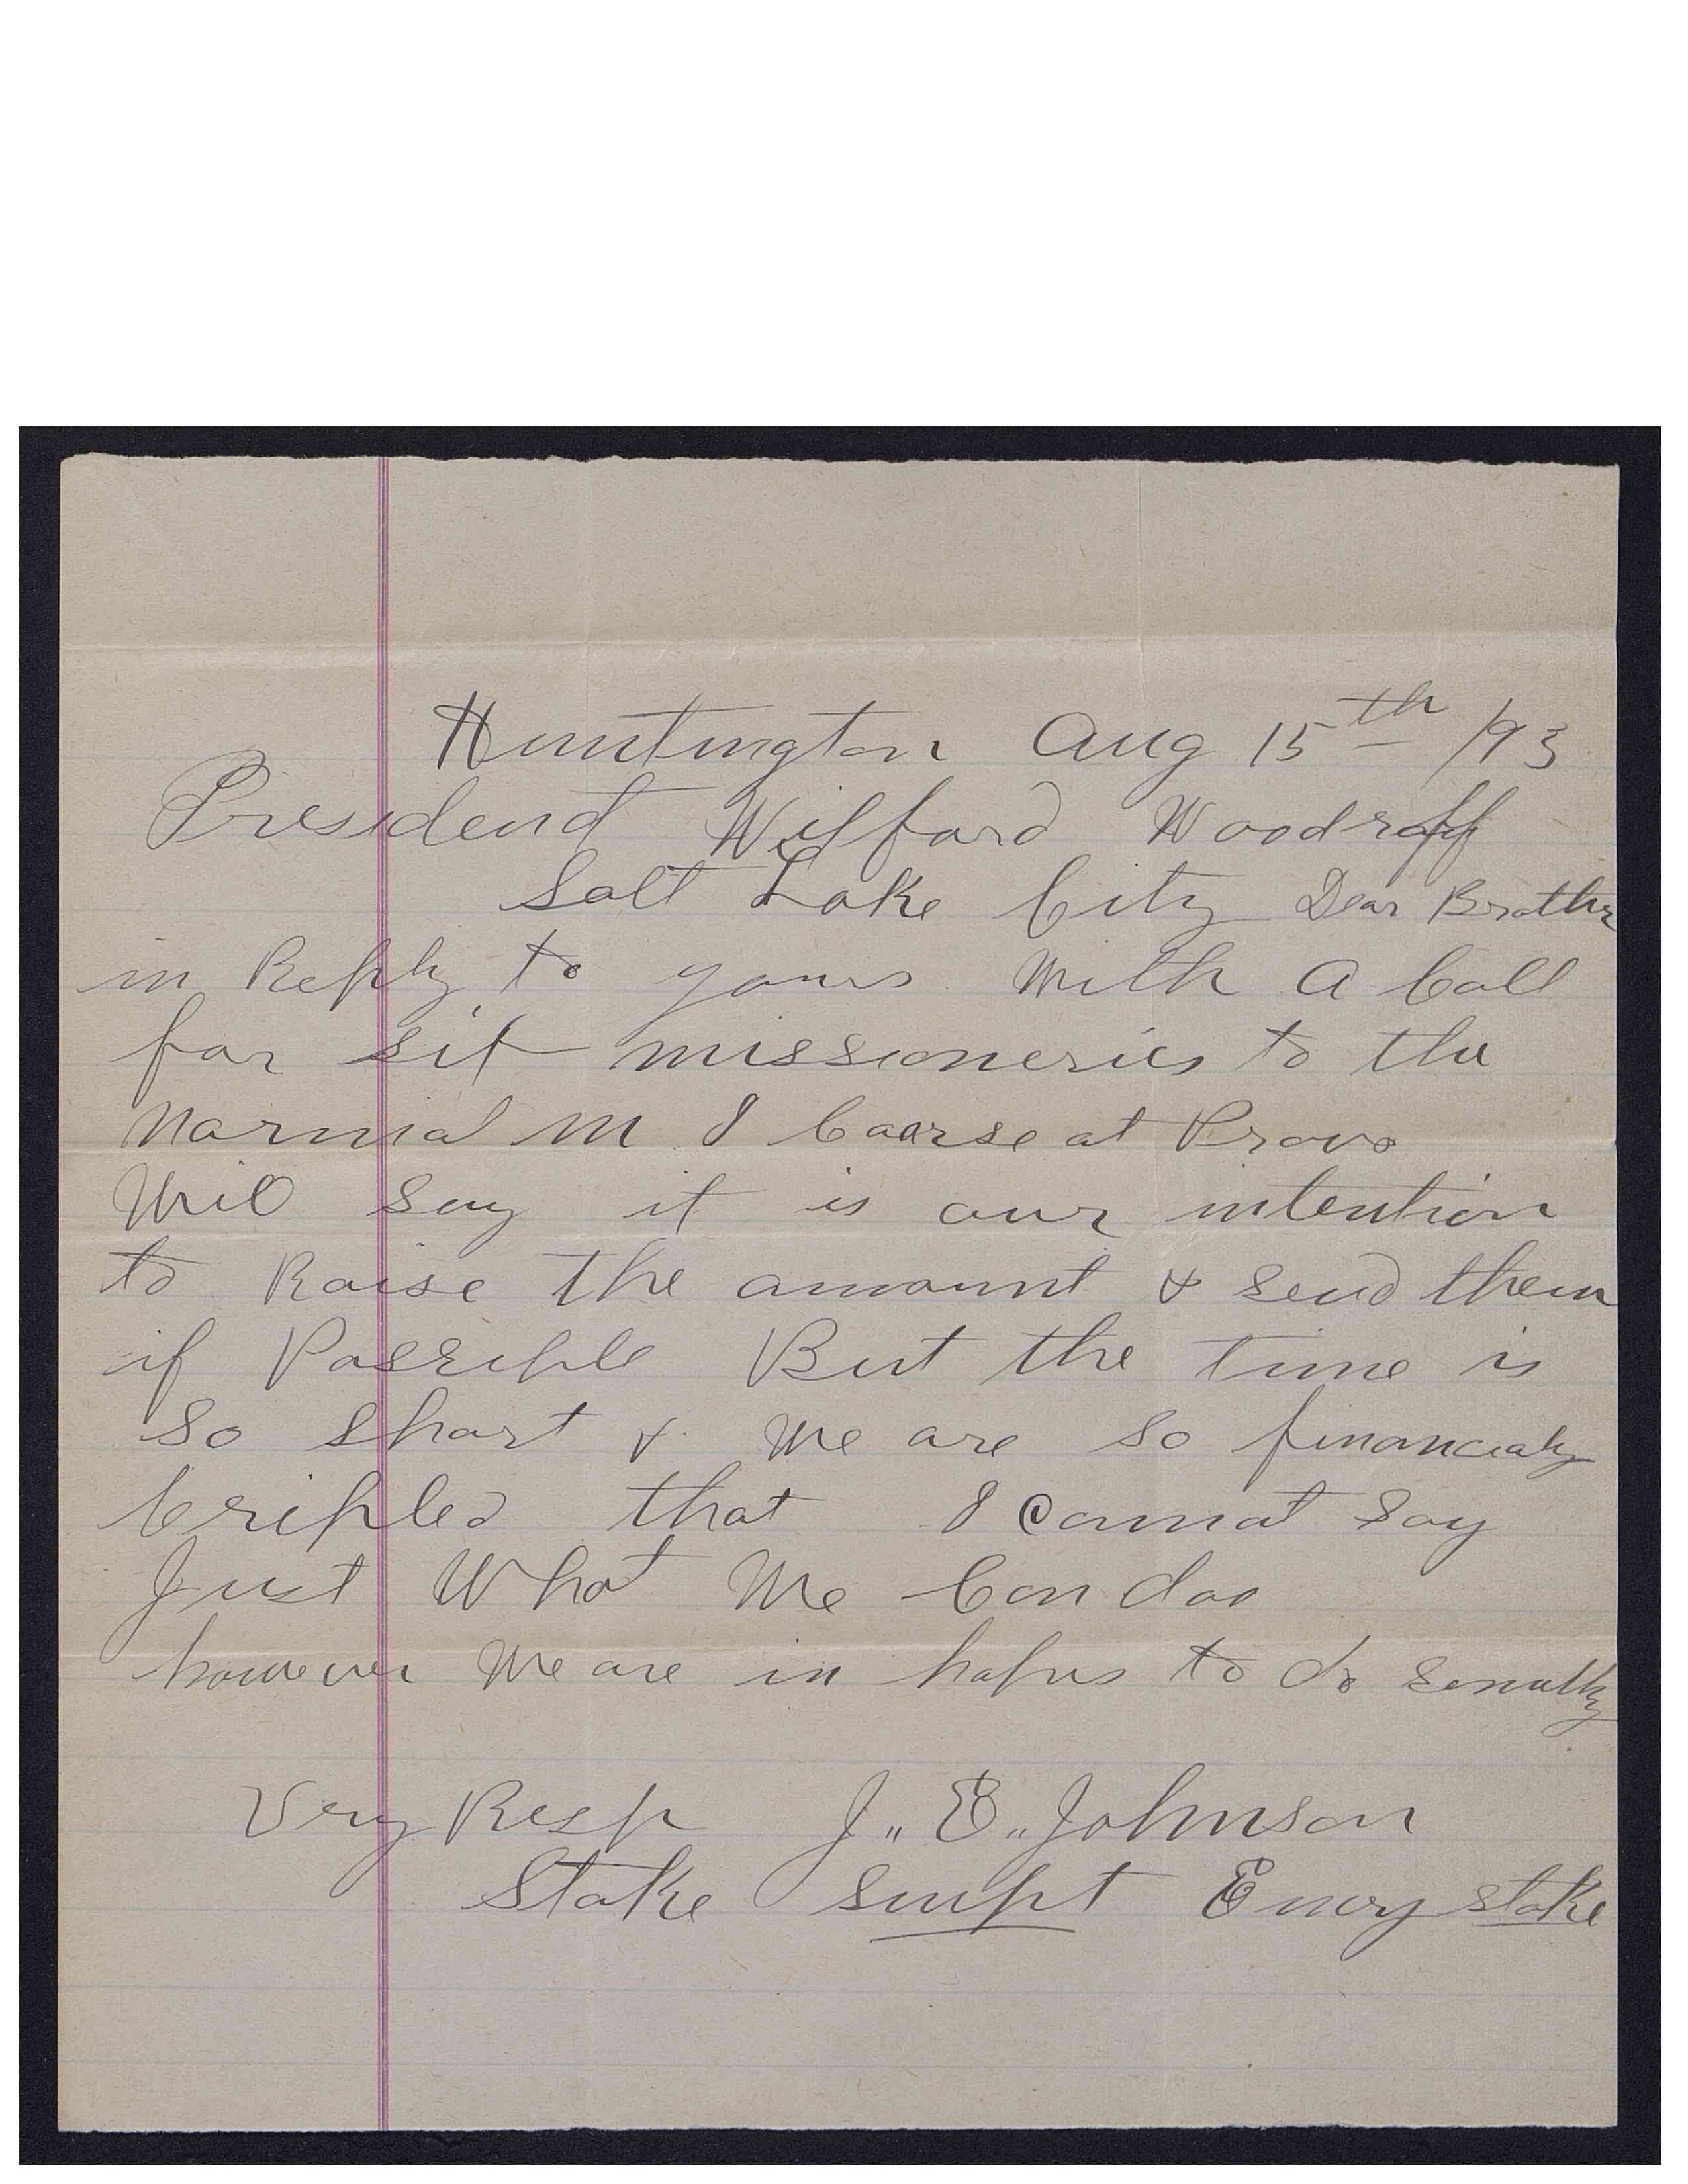 Huntington Aug 15th /93
Presidend Wilford Woodruff
Salt Lake City Dear Brother
in Reply to yours With A Call
for six missioneries to the
Normal M I Coarse at Provo
Will say it is our intention
to Raise the amount & send them
if Possible But the time is
so short & We are so financialy
Cripled that I Cannot say
Just What We Can doo
however We are in hopes to do
Very Resp J. E. Johnson
Stake Supt Emery stake